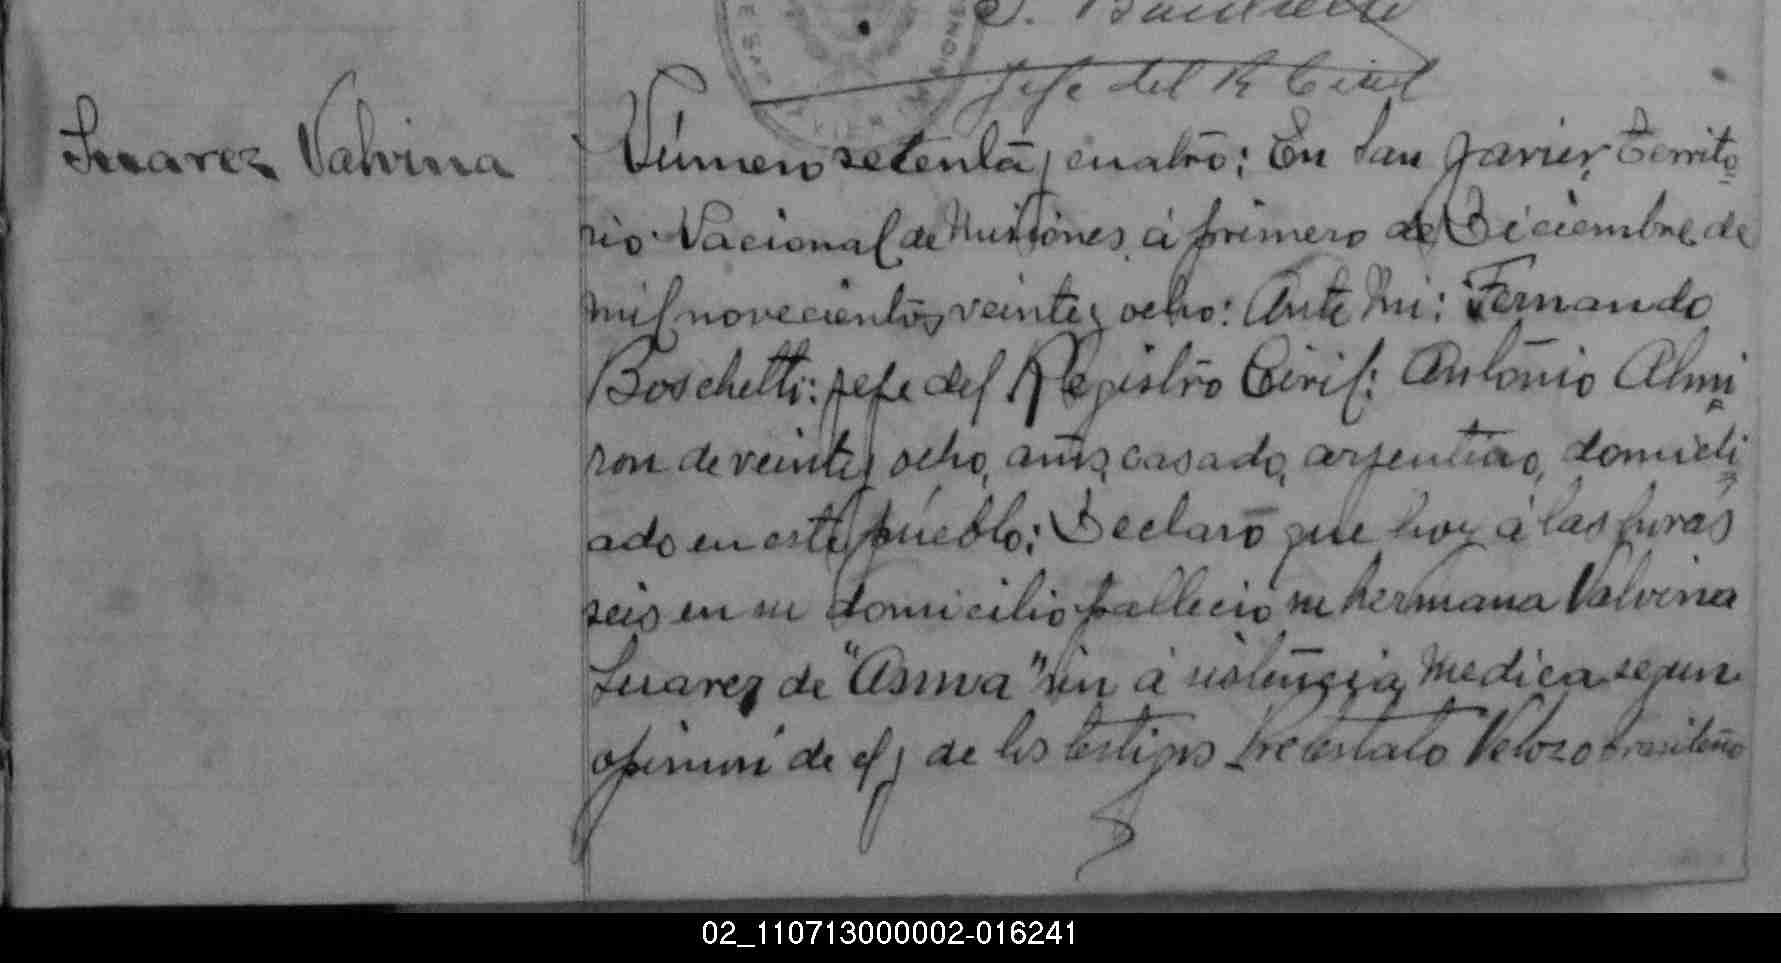 Jefe del R Civil
Suarez Valvina
Número setenta y cuatro: En San Javier, Territo
rio Nacional de Misiones, á primero de Diciembre de
mil novecientos veinte y ocho: Ante Mi: Fernando
Boschetti: Jefe del Registro Civil: Antonio Almi
ron de veinte y ocho, años, casado, argentino, domicili
ado en este pueblo; Declaró que hoy á las horas
seis en su domicilio fallecio su hermana Valvina
Suarez de "Asma" sin á sistencia Medica segun
opinion de el y de los testigos Veloso brasileño
02_110713000002-016241